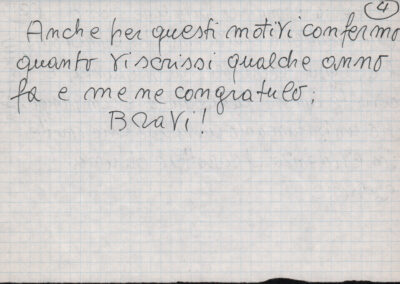 4
Anche per questi motivi confermo
quanto vi scrissi qualche anno
fa e me ne congratulo;
Bravi!